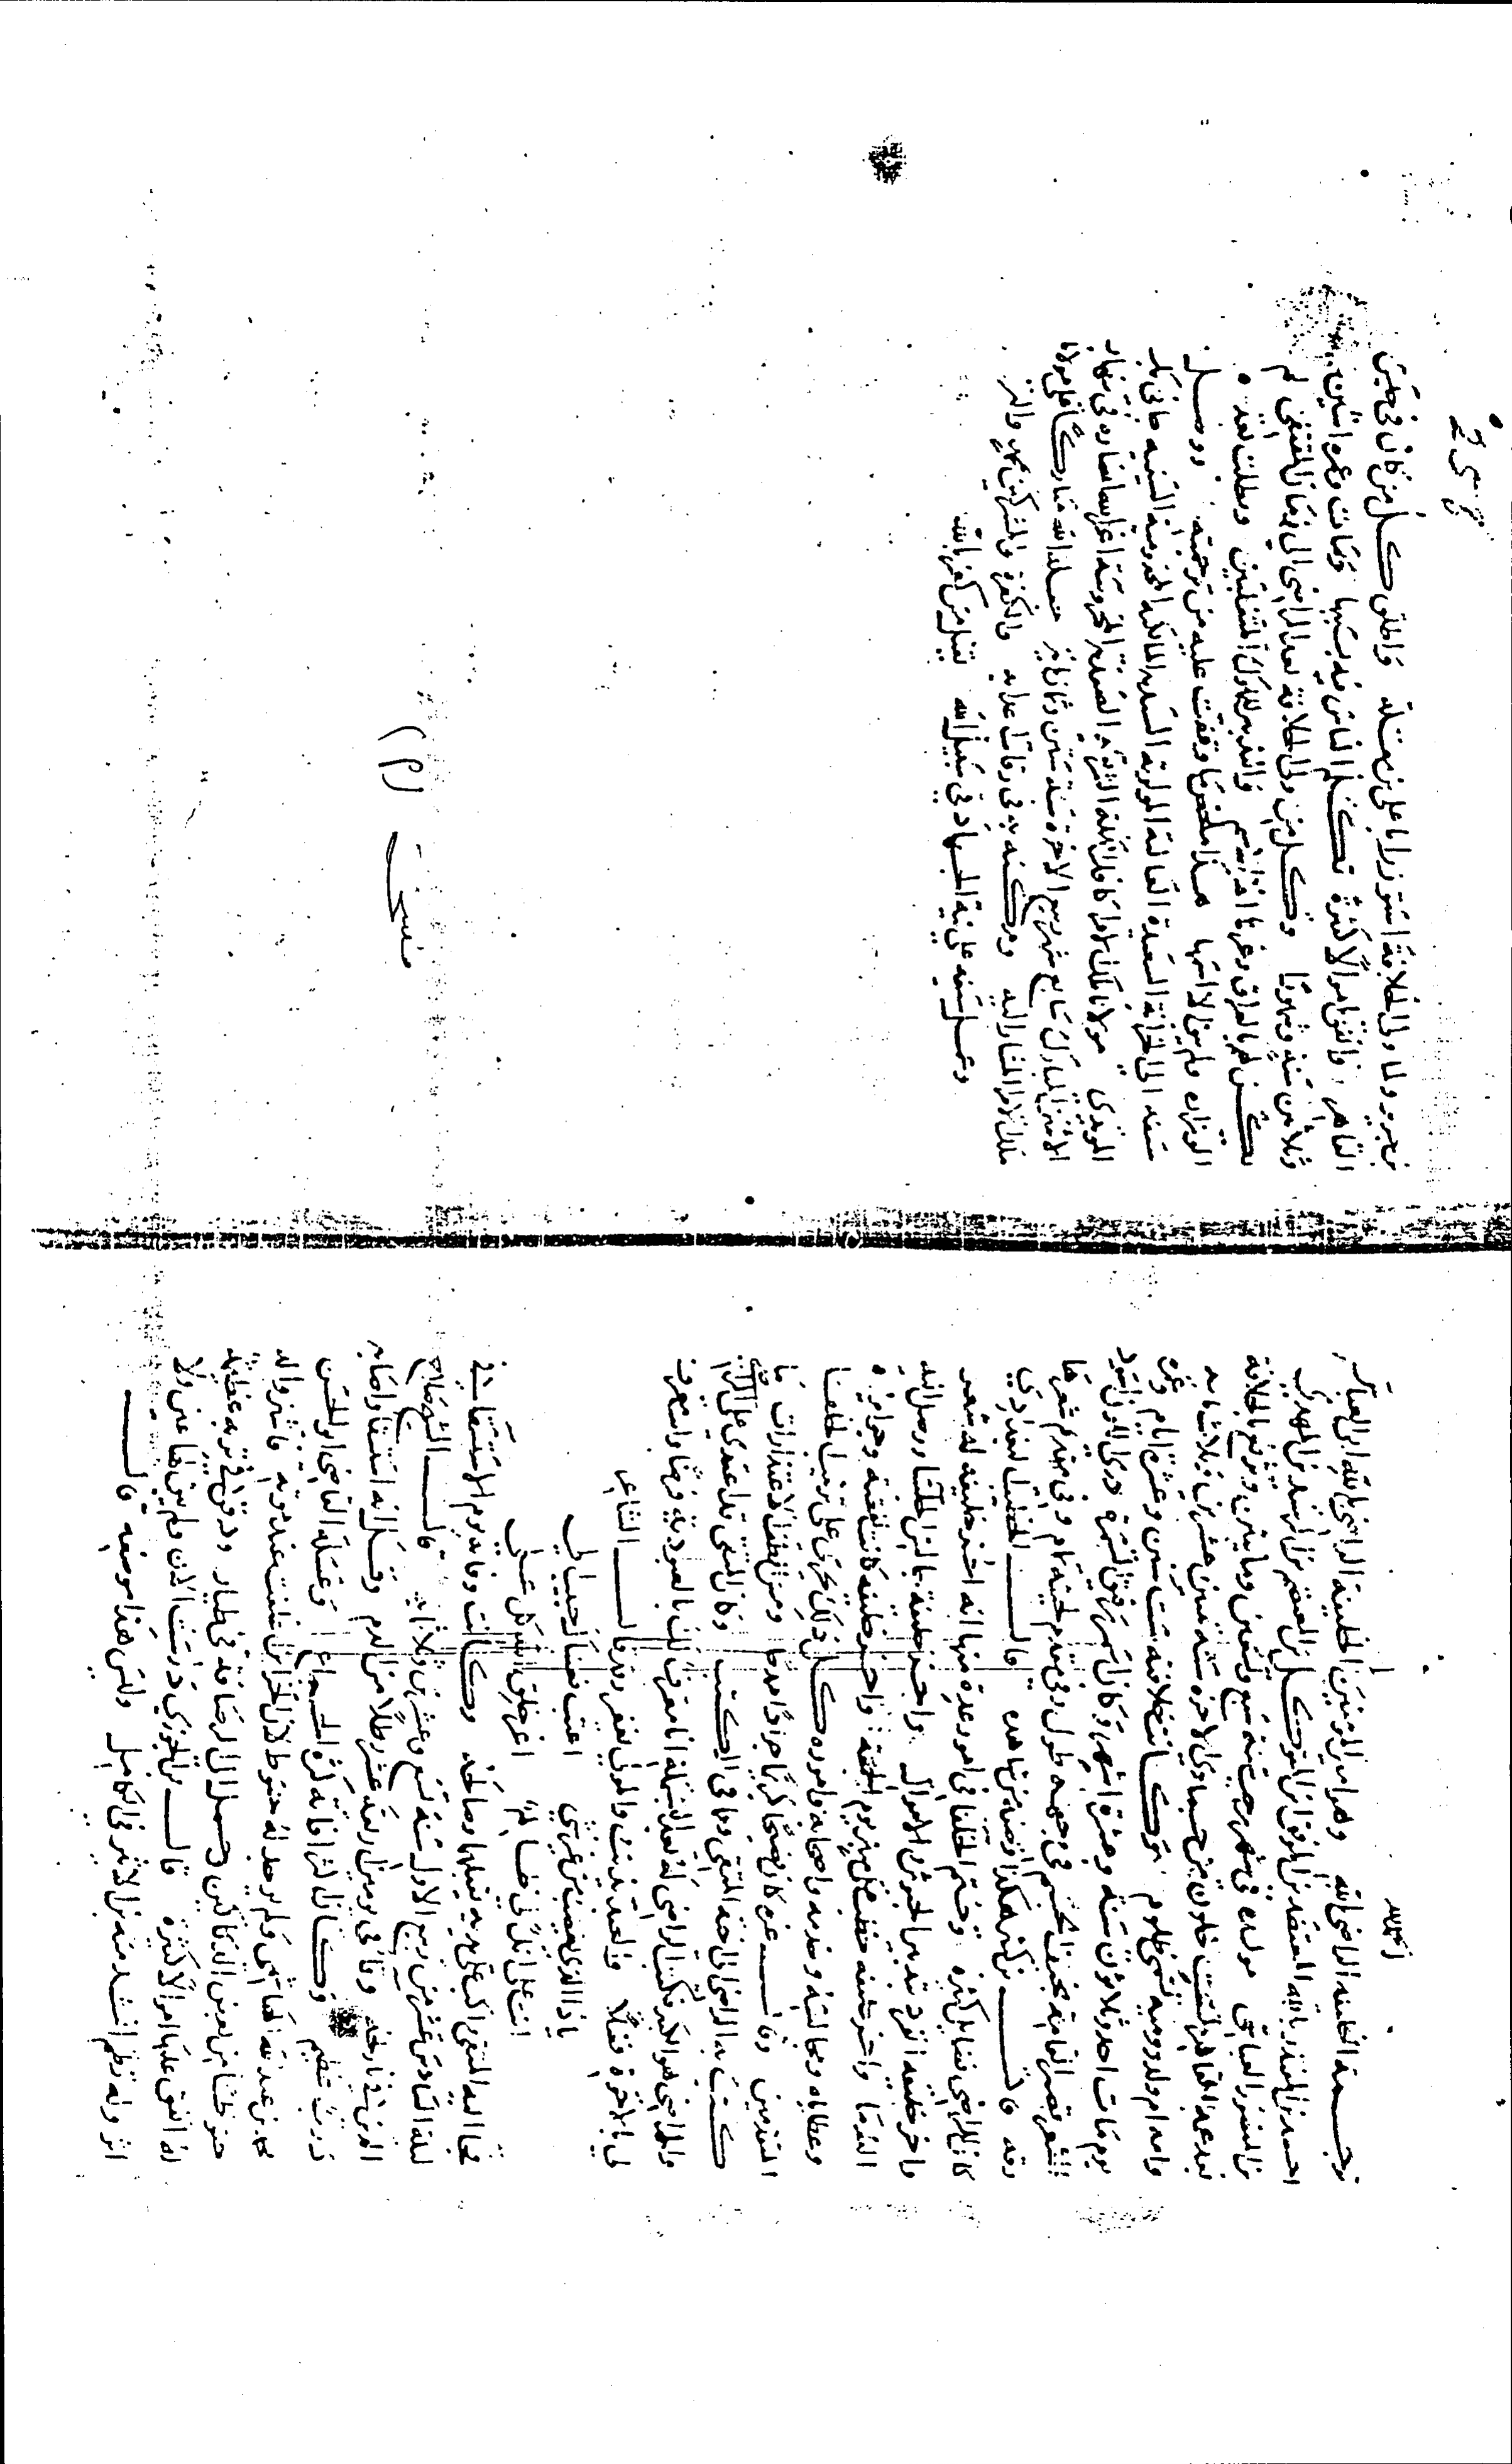 ترجمة الخليفة الراضي بالله وهو امير المومنين الخليفة الراضي بالله ابو العباس
احمد بن المقتدر بالله بن المعتضد بن الموفق بن المتوكل بن المعتصم بن الرشيد بن المهدي
بن المنصور العباسي مولده في شهر رجب سنة سبع وتسعين ومايتين وبويع بالخلافة
بعد عمه القاهر لست خلون من جمادى سنة اثنين وعشرين وثلاثمايه
وامه ام ولد رومية تسمى ظلوم وكانت خلافته ست سنين وعشرة ايام وعمره
يوم مات احدى وثلاثون سنة وعشرة اشهر وكان اسمر رقيق السمرة دري اللون اسود
الشعر قصير القامة نحيف الجسم في وجهه طول وفي مقدم لحيته تمام وفي شعرها
رقه قال من هكذا وصفه من شاهده قال الخطيب البغدادي
كان للراضي فضايل كثيرة وختم الخلفا في امور عدة منها انه اخر خليفة له شعر
واخر خليفة انفرد بتدبير الجيوش والاموال واخر خليفة جالس الجلسا ووصل اليه
الندما واخر خليفة خطب على منبر يوم الجمعة واخر خليفة كانت نفقته وجوايزه
وعطاياه ومجالسه وخدمه واصحابه واموره كل ذلك يجري على ترتيب الخلفا
المتقدمين وقال غيره كان فصيحا كريما جوادا ممدحا ومن الطف الاعتذارات ما
كتب به الراضي الى اخيه المتقي وهما في المكتب وكان المتقي قد اعتدى على الراضي
والراضي هو الكبير فكتب الراضي له بعد البسملة انا معترف لك بالعبودية فرضا وانت معترف
لي بالاخوة فضلا والعبد يذنب والمولى يعفو وقد قال الشاعر
يا ذا الذي يغضب من غير شي اعتب فعتباك حبيب الي
انت على انك لي ظالم اعز خلق الله كل علي
فجا اليه المتقي واكب على يديه يقبلهما وصالحه وكانت وفاته يوم الاستسقا في
ليلة السادس عشر من ربيع الاول سنة تسع وعشرين وثلاثمايه قال الشيخ صلاح
الدين في تاريخه وقا في يومين اربعة عشر رطلا من الدم وقيل انه استسقا واصابه
ذرب عظيم وكان من اكثر افاته كثرة الجماع وغسله القاضي ابو الحسن
محمد بن عبد الله الهاشمي ولم يوجد له حنوط لان الخزاين ختمت عند موته فاشتر واله
حنوطا من بعض الدكاكين وحمل الى الرصافة في طيار ودفن في تربة عظيمة
له انفق عليها اموالا كثيرة قال بن الجوزي درست الان ولم يبق لها عين ولا
اثر وله نظم انشد منه بن الاثير في الكامل وليس هذا موضعه قال
بن جرير ولما ولى الخلافة استوزر ابا علي بن مقلة واطلق كل من كان في حبس
القاهر وانفق اموالا كثيرة تكلم الناس فيه بسببها ومات وعمره اثنين
وثلاثين سنة وشهورا وكل من ولى الخلافة بعد الراضي الى زمان المقتفي لم
يكن لهم بالعراق وغيرها الا الاسم والتدبير للملوك المتغلبين وبطلت بعده
الوزارة ولم يبق الا اسمها هذا ملخص ما وقفت عليه من ترجمته ووصل
سيفه الى الخزانة السعيدة العالية المولوية السيدية المالكية المخدومية السيفية
المويدي مولانا ملك الامرا كافل المملكة الشريفة الصفدية المحروسة اعز الله انصاره في نهار
الاثنين المبارك سابع شهر ربيع الاخر سنة ستين وثمانماية جعله الله مباركا على مولانا
ملك الامرا المشار اليه ومكنه به في رقاب عداه والكفرة والمشركين بمحمد واله
وعمل سيفه على نية الجهاد في سبيل الله من كفر بالله